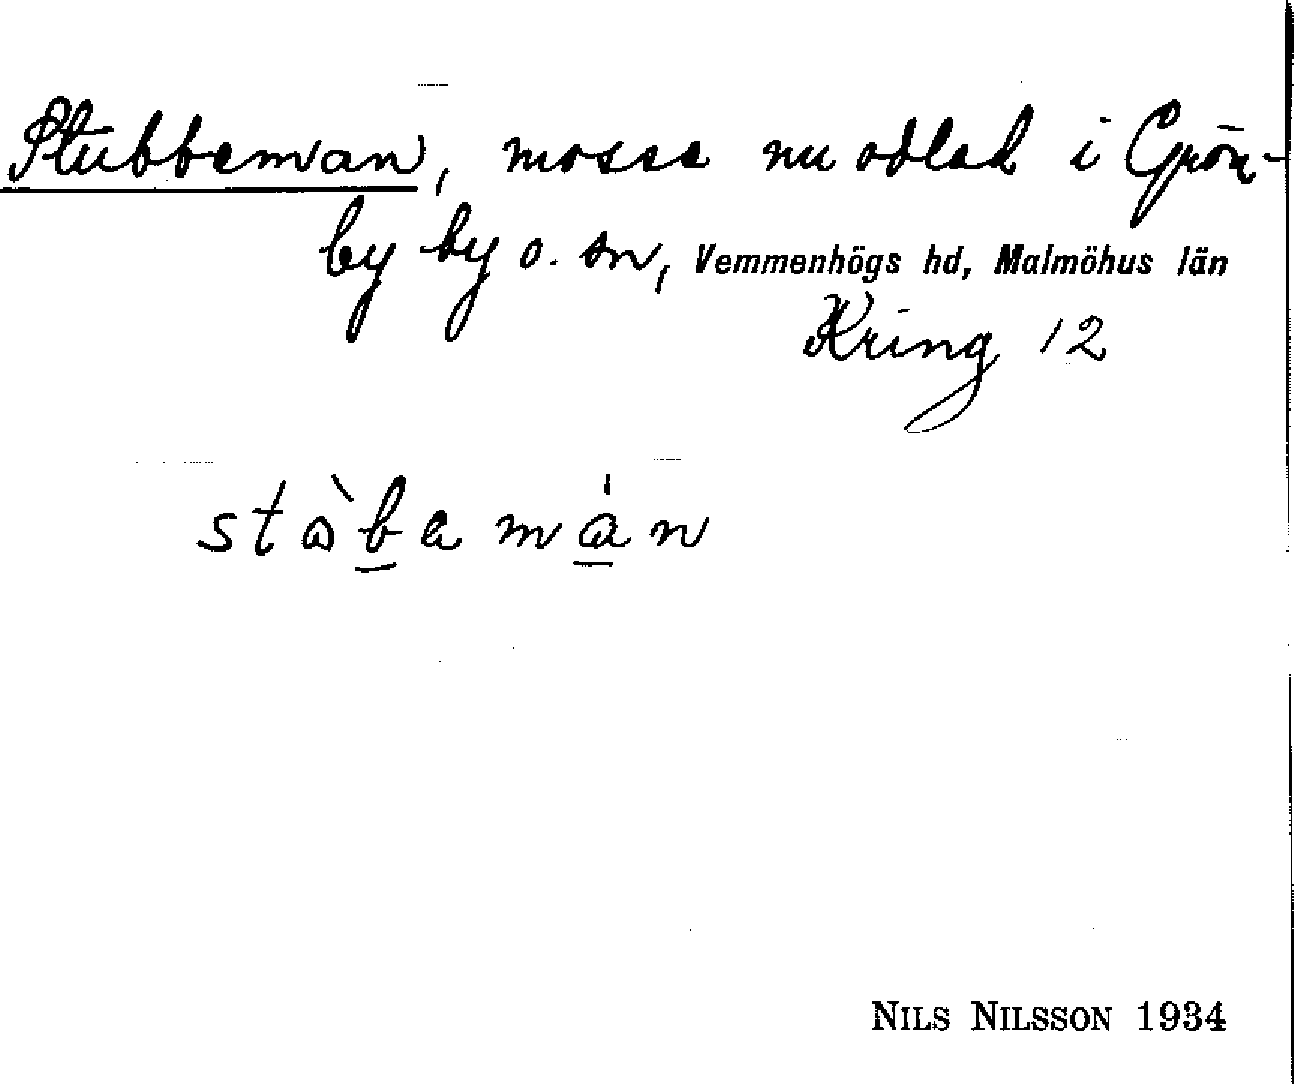 Stubbeman, mosse nu odlad i Grön-
by by o. sn, Vemmenhögs hd, Malmöhus län
Kring 12
stòbamán
NILS NILSSON 1934